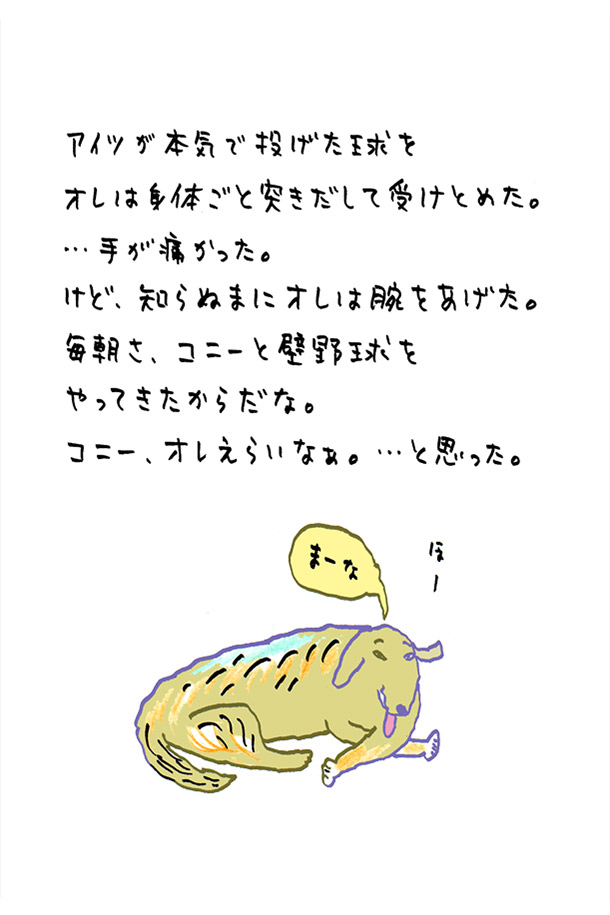 アイツが本気で投げた球を
オレは身体ごと突きだして受けとめた。
…手が痛かった。
けど、知らぬまにオレは腕をあげた。
毎朝さ、コニーと壁野球を
やってきたからだな。
コニー、オレえらいなぁ。…と思った。
まーな
ほー